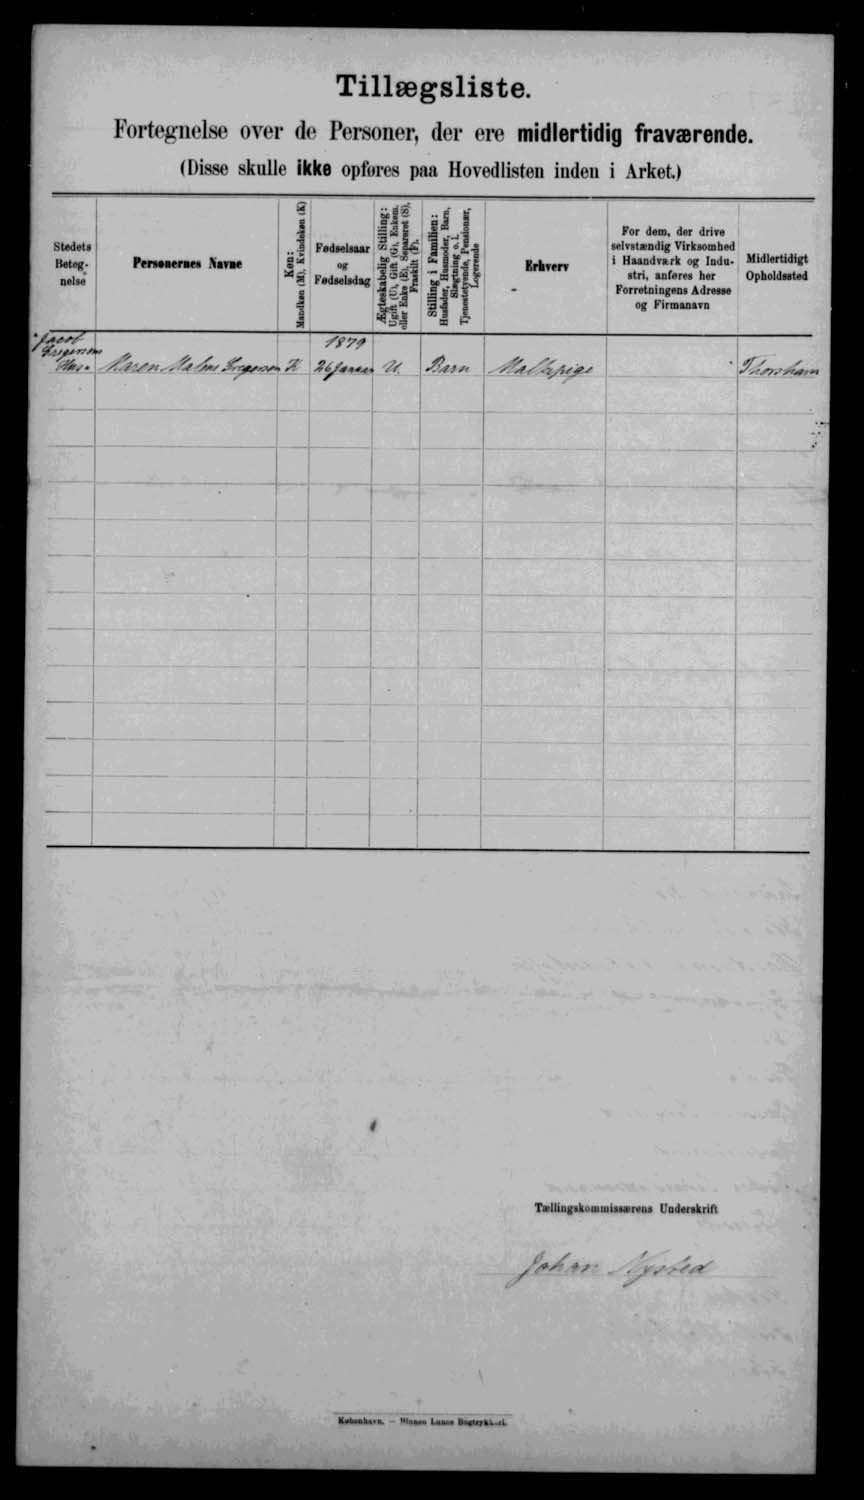 Tillægsliste.
Fortegnelse over de Personer, der ere midlertidig fraværende.
(Disse skulle ikke opføres paa Hovedlisten inden i Arket.)
Stedets
Beteg-
nelse
Personernes Navne
Køn:
Mandkøn (M), Kvindekøn (K)
Fødselsaar
og
Fødselsdag
Ægteskabelig Stilling:
Ugift (U), Gift (G), Enkem.
eller Enke (E), Separeret (S),
Fraskilt (F).
Stilling i Familien:
Husfader, Husmoder, Barn,
Slægtning o. l.
Tjenestetyende, Pensionær,
Logerende
Erhverv
For dem, der drive
selvstændig Virksomhed
i Haandværk og Indu-
stri, anføres her
Forretningens Adresse
og Firmanavn
Midlertidigt
Opholdssted
Jacob
Gregersens
Hus
1879
Maren Malene Gregersen K 26 Januar U. Barn Malkepige Thorshavn
Tællingskommissærens Underskrift
Johan Nysted
København. — Bianco Lunos Bogtrykkeri.